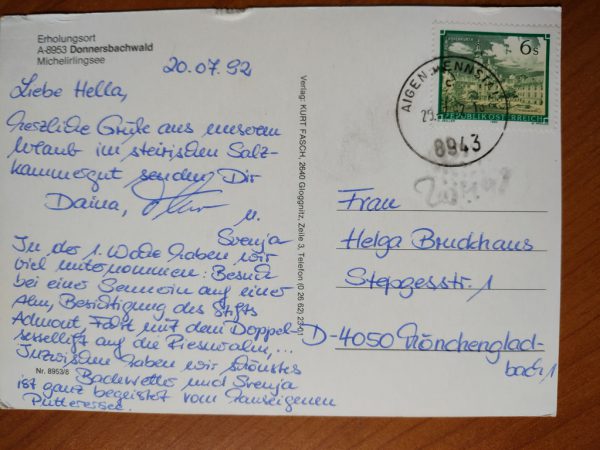 Erholungsort
A-8953 Donnersbachwald
Michelirlingsee
20.07.92
Liebe Hella,
herzliche Grüße aus unserem
Urlaub im steirischen Salz-
kammergut senden Dir
Daina,
u.
Svenja
In der 1. Woche haben wir
viel unternommen: Besuch
bei einer Sennerin auf einer
Alm, Besichtigung des Stifts
Admont, Fahrt mit dem Doppel-
sessellift auf die Rieseralm, ...
Inzwischen haben wir schönstes
Badewetter und Svenja
ist ganz begeistert vom hauseigenen
Putterersee.
Nr. 8953/8
Verlag: KURT FASCH, 2640 Gloggnitz, Zeile 3, Telefon (0 26 62) 23
6s
REPUBLIK ÖSTERREICH
AIGEN
8943
Frau
Helga Bruckhaus
Stepgesstr. 1
D-4050 Mönchenglad-
bach 1